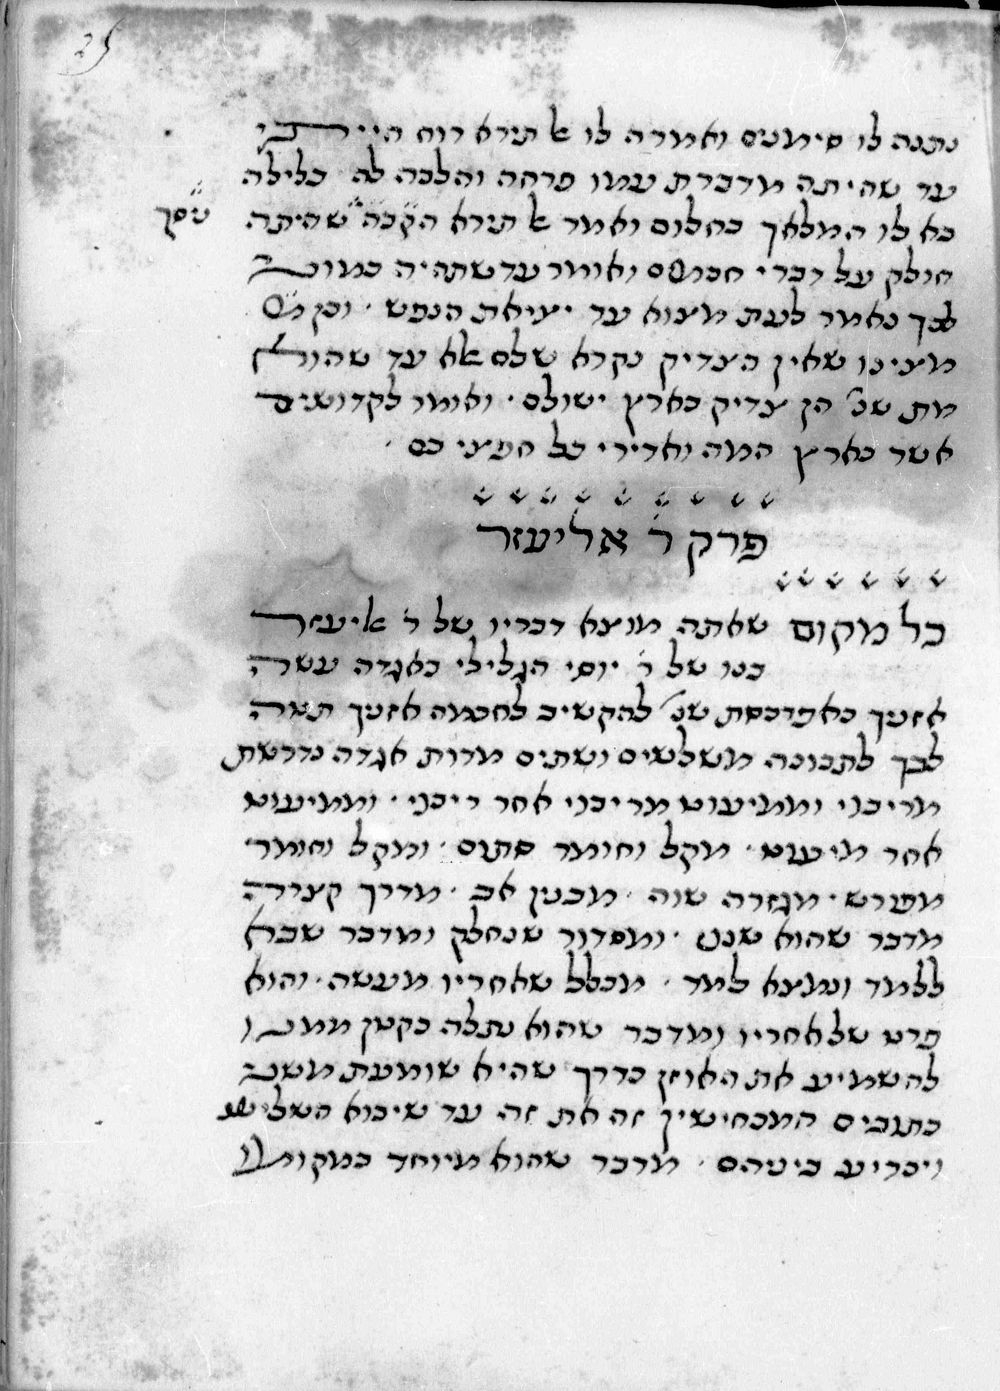 25
נתנה לו סימנים ואמרה לו אל תירא רוח היי
עד שהיתה מדברת עמו פרחה והלכה לה בלילה
בא לו המלאך בחלום ואמר אל תירא הקבה שהיתה
חולק על דברי חכמים ואומר עד שתהיה כמות
לכך נאמר לעת מצוא עד יציאת הנפש · וכן
מצינו שאין הצדיק נקרא שלם אלא עד שהולך
מת שנ' הן צדיק בארץ ישולם · ואומר לקדושים
אשר בארץ המה ואדירי כל חפצי בם ·
פרק ר' אליעזר
כל מקום שאתה מוצא דבריו של ר' אליעזר
בנו של ר' יוסי הגלילי באגדה עשה
אזניך כאפרכסת שנ' להקשיב לחכמה אזניך תטה
לבך לתבונה משלשים ושתים מדות אגדה נדרשת
מריבוי וממיעוט מריבוי אחר ריבוי · וממיעוט
אחר מיעוט · מקל וחומר סתום · ומקל וחומר
מפורש · מגזרה שוה · מבנין אב · מדרך קצירה
מדבר שהוא שנוי · ומסדור שנחלק ומדבר שבא
ללמד ונמצא למד · מכלל שאחריו מעשה · והוא
פרט של אחריו ומדבר שהוא נתלה בקטן ממנו
להשמיע את האוזן כדרך שהיא שומעת משני
כתובים המכחישין זה את זה עד שיבוא השלישי
ויכריע ביניהם · מדבר שהוא מיוחד במקומו